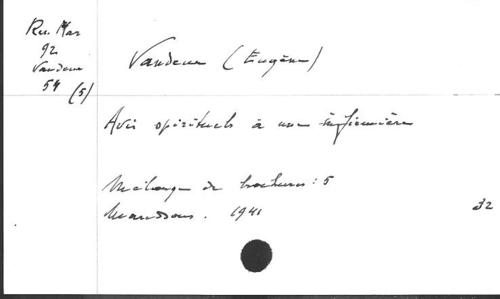 Res. Mar
92
Vandeur
54 (5)
Vandeur (Eugène)
Avis spirituels à une infirmière
Mélange de brochures : 5
Maredsous. 1941
d2